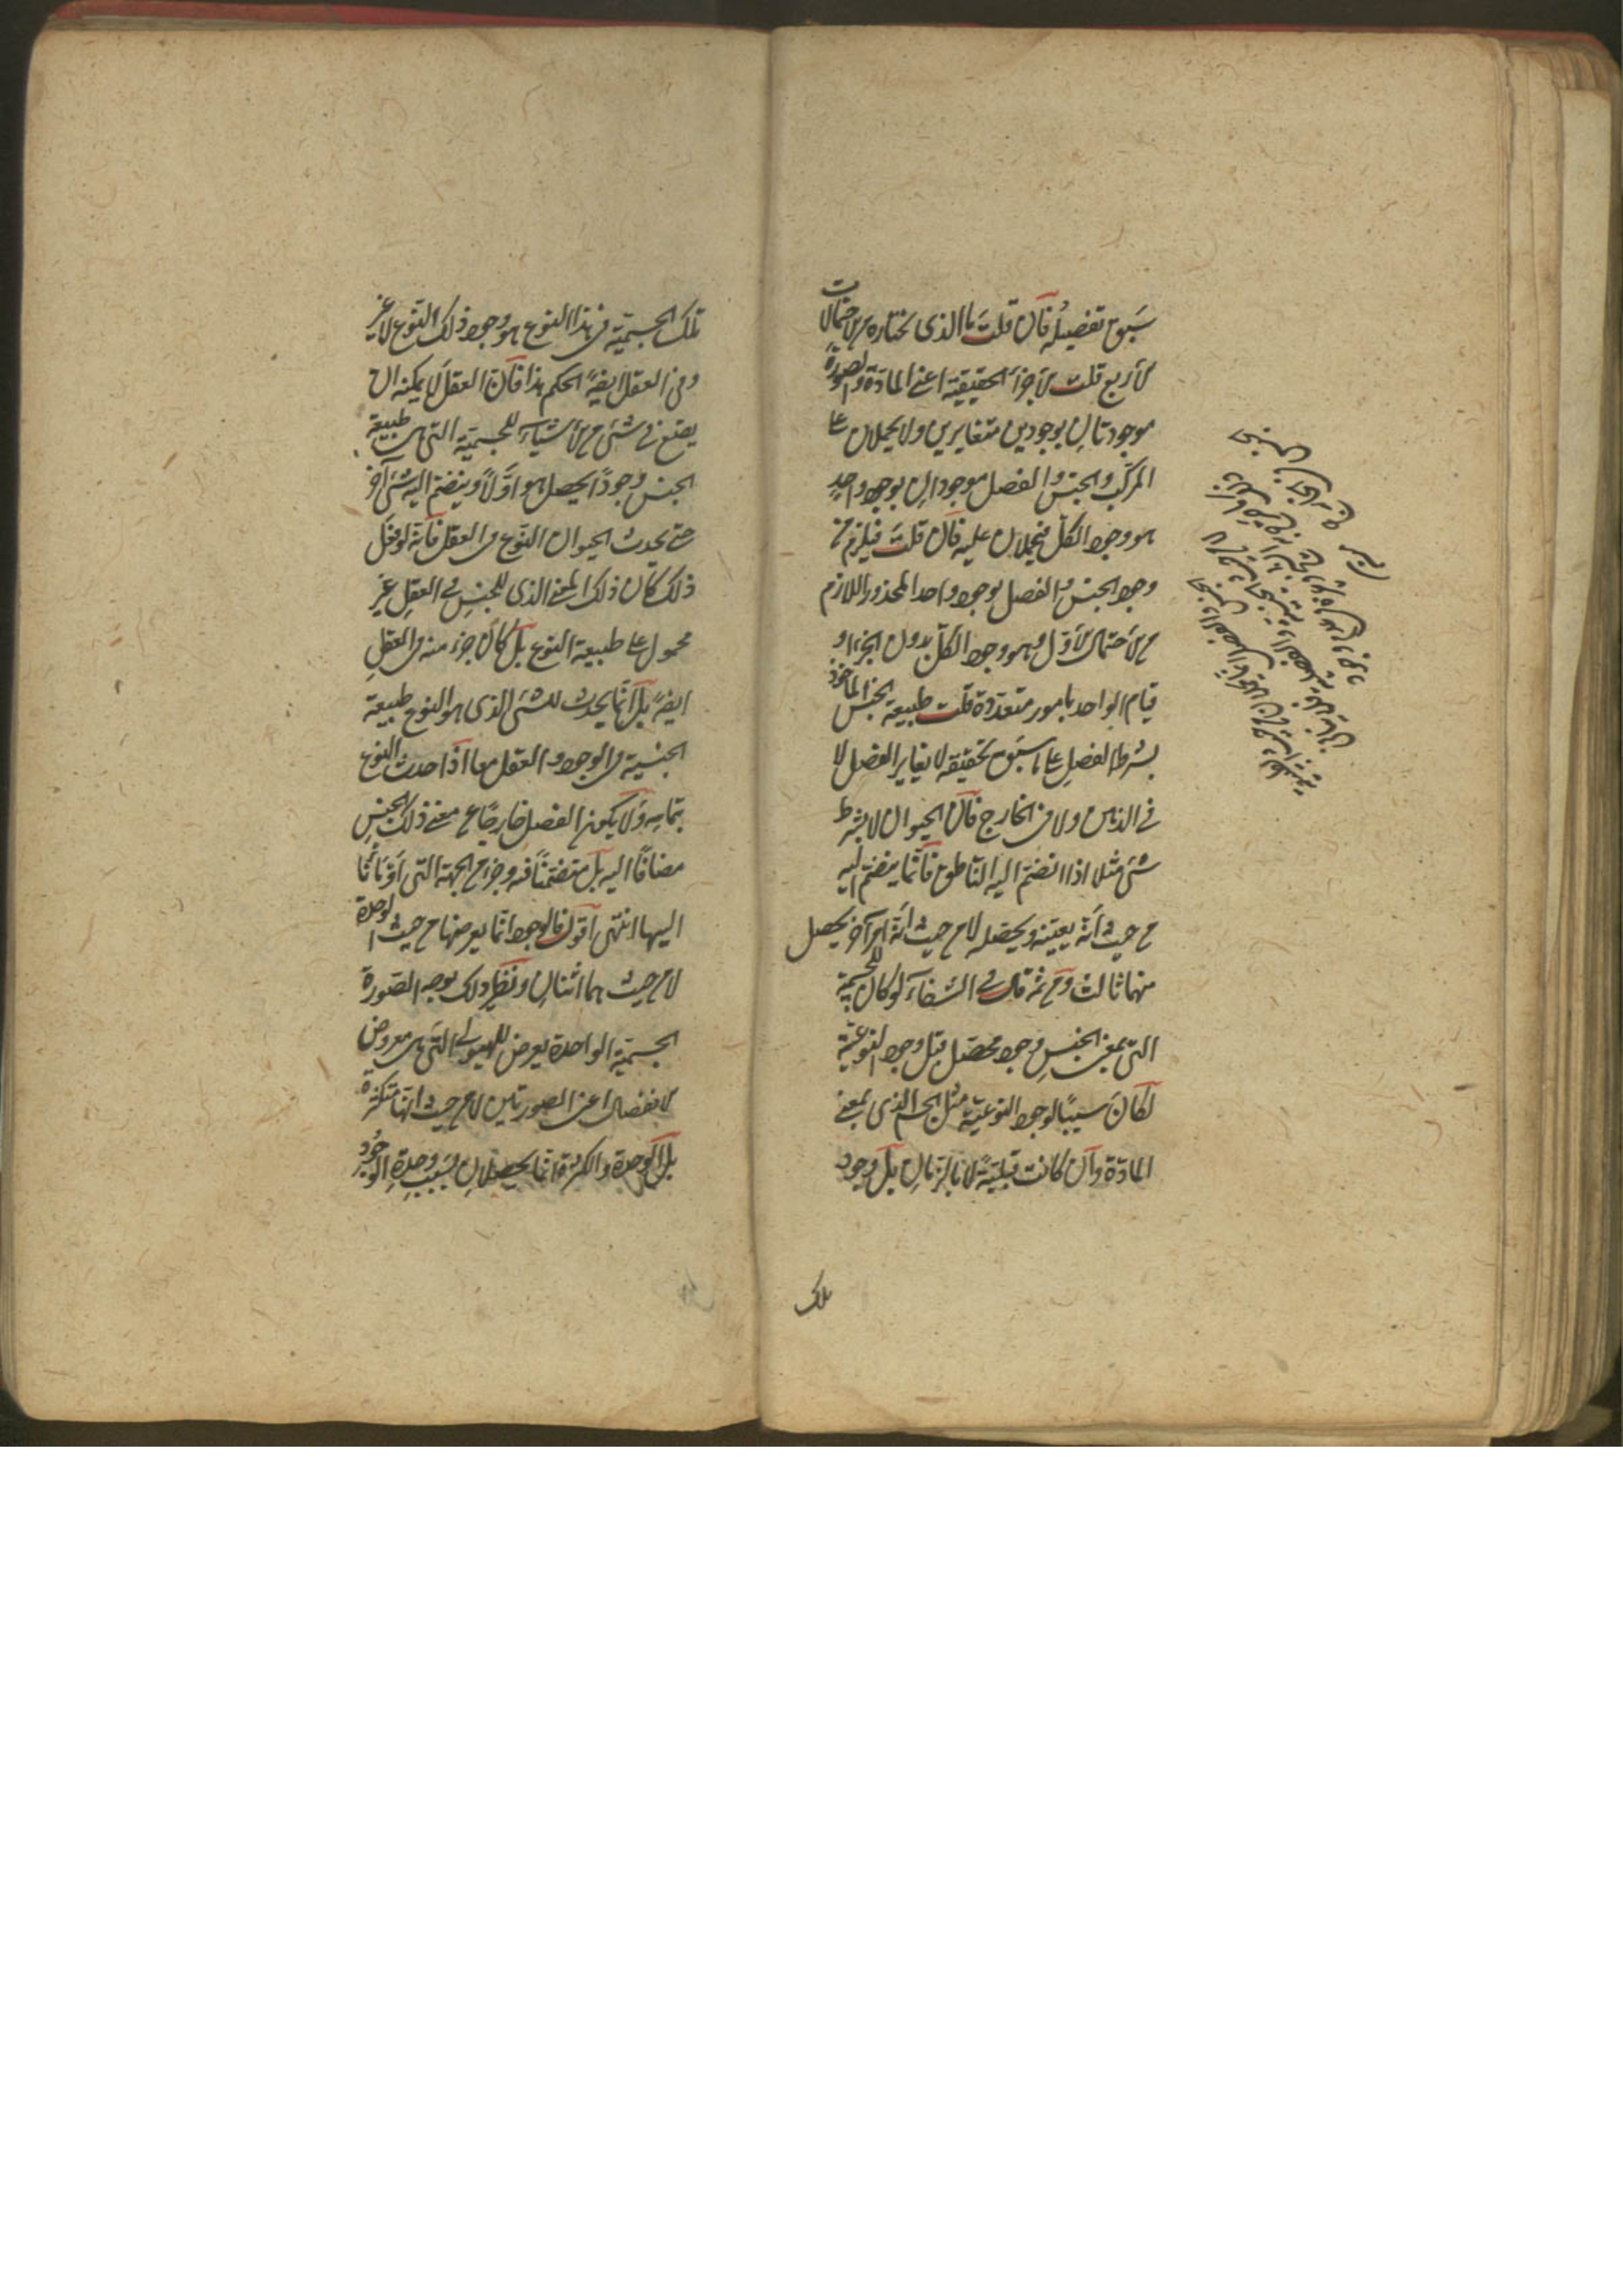 سبق تفصيله فان قلت ما الذى تختاره من الاحتمالات
الأربع قلت الأجزاء الحقيقية اعنى المادة والصورة
موجودتان بوجودين متغايرين ولا يحملان على
المركب والجنس والفصل موجودان بوجود واحد
هو وجود الكل فيحملان عليه فان قلت فيلزم من
وجود الجنس والفصل بوجود واحد المحذور اللازم
من الاحتمال الأول وهو وجود الكل بدون الجزء او
قيام الواحد بامور متعددة قلت طبيعة الجنس الماخوذ
بشرط الفصل على ما سبق تحقيقه لا يغاير الفصل لا
فى الذهن ولا فى الخارج فان الحيوان لا بشرط
شئ مثلا اذا انضم اليه الناطق فانما ينضم اليه
من حيث انه يعينه ويحصله لا من حيث انه امر آخر يحصل
منهما ثالث ومن ثم قال فى الشفاء لو كان للجسمية
التى بمعنى الجنس وجود محصل قبل وجود النوعية
لكان سببا لوجود النوعية مثل الجسم الذى بمعنى
المادة وان كانت قبلية لا بالزمان بل وجود
تلك
تلك الجسمية فى هذا النوع هو وجود ذلك النوع لا غير
وفى العقل ايضا الحكم هذا فان العقل لا يمكنه ان
يضع فى شئ من الأشياء للجسمية التى هى طبيعة
الجنس وجودا يحصل هو اولا وينضم اليه شئ آخر
حتى يحدث الحيوان النوع فى العقل فانه لو فعل
ذلك كان ذلك المعنى الذى للجنس فى العقل غير
محمول على طبيعة النوع بل كان جزء منه فى العقل
ايضا بل انما يحدث للشئ الذى هو النوع طبيعة
الجنسية فى الوجود والعقل معا اذا حدث النوع
بتمامه ولا يكون الفصل خارجا عن معنى ذلك الجنس
مضافا اليه بل متضمنا فيه وجزء من الجهة التى اومأنا
اليها انتهى اقول فالوجود انما يعرضهما من حيث الوحدة
لا من حيث هما اثنان ونظير ذلك بوجه الصورة
الجسمية الواحدة يعرض للهيولى التى هى معروض
الانفصال اعنى الصورتين لا من حيث انها متكثرة
بل الوحدة والكثرة انما يحصلان بسبب وحدة الوجود